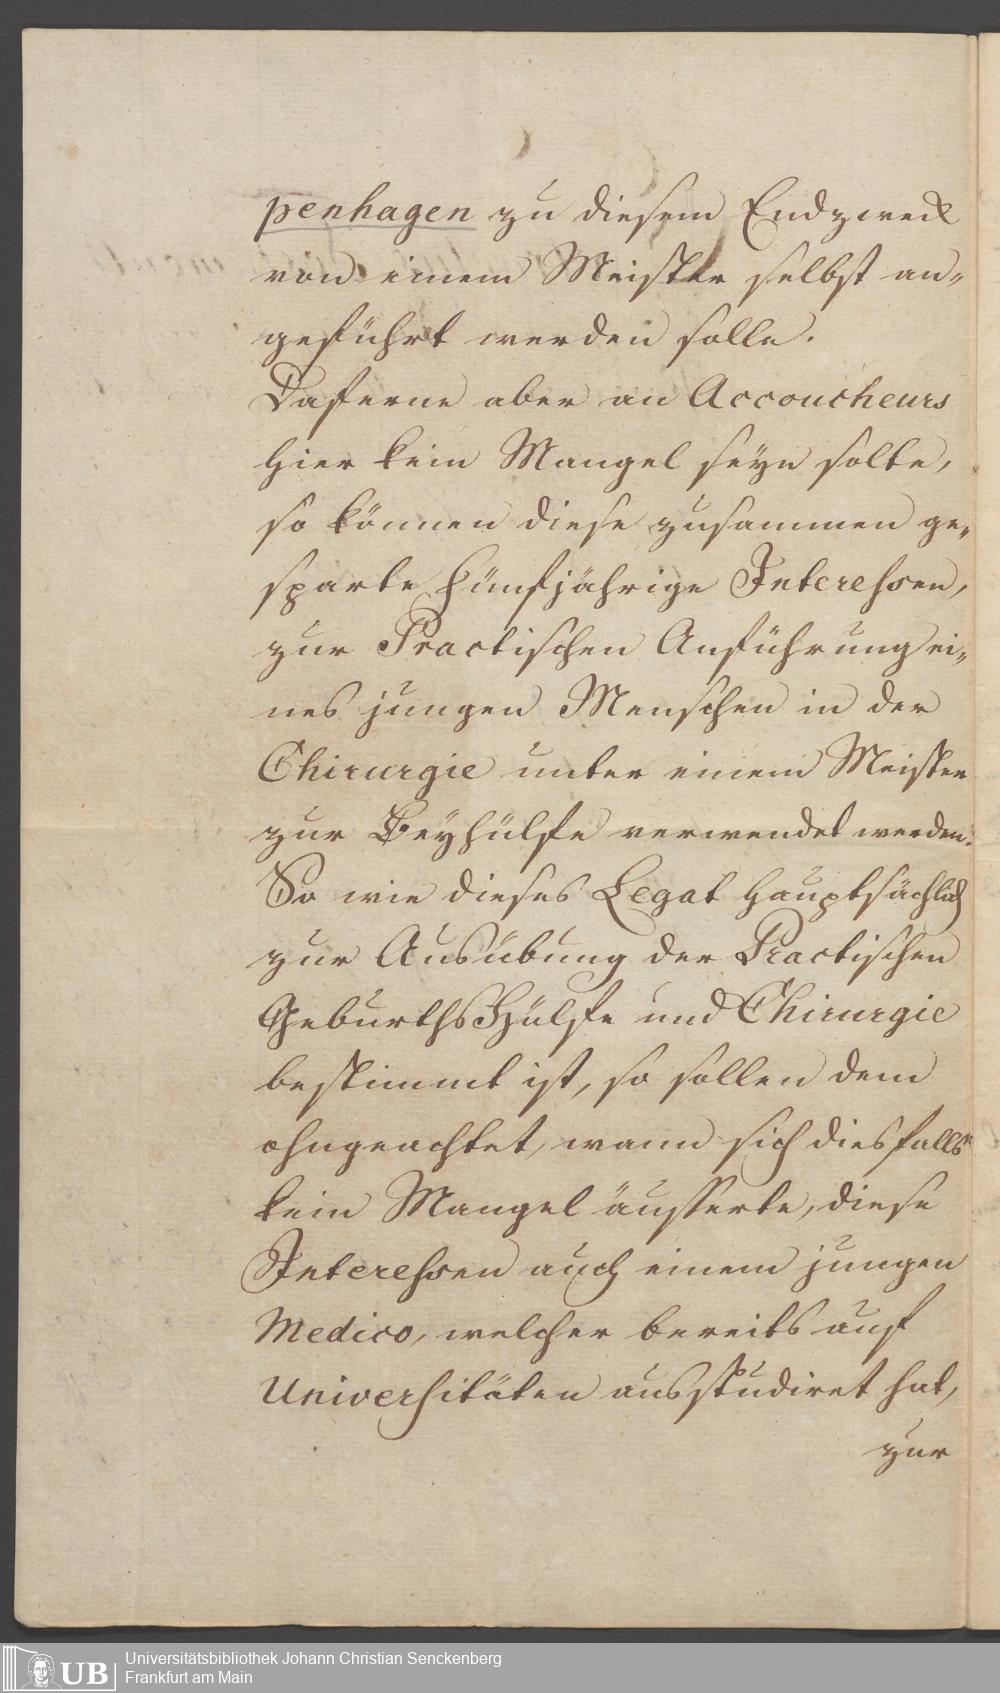 penhagen zu diesem Endzweck
von einem Meister selbst an„
geführt werden solle.
Daferne aber an Accoucheurs
hier kein Mangel seyn solte,
so können diese zusammen ge„
sparte fünfjährige Interessen,
zur Practischen Anführung ei„
nes jungen Menschen in der
Chirurgie unter einem Meister
zur Beyhülfe verwendet werden.
So wie dieses Legat hauptsächlich
zur Ausübung der Practischen
GeburthsHülfe und Chirurgie
bestimmt ist, so sollen dem
ohngeachtet, wann sich diesfalls
kein Mangel äusserte, diese
Interessen auch einem jungen
Medico, welcher bereits auf
Universitäten ausstudiret hat,
zur
UB
Universitätsbibliothek Johann Christian Senckenberg
Frankfurt am Main